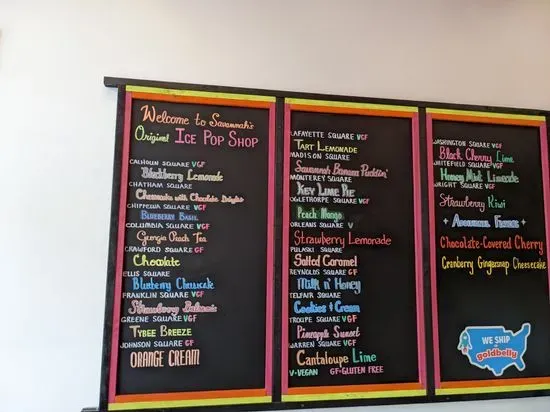 Welcome to Savannah's
Original Ice Pop Shop
CALHOUN SQUARE VGF
Blackberry Lemonade
CHATHAM SQUARE
Cheesecake with Chocolate Delights
CHIPPEWA SQUARE VGF
Blueberry Basil
COLUMBIA SQUARE VGF
Georgia Peach Tea
CRAWFORD SQUARE GF
Chocolate
ELLIS SQUARE
Blueberry Cheesecake
FRANKLIN SQUARE VGF
Strawberry Balsamic
GREENE SQUARE VGF
TYBEE BREEZE
JOHNSON SQUARE GF
ORANGE CREAM
LAFAYETTE SQUARE VGF
TART LEMONADE
MADISON SQUARE
Savannah Banana Puddin'
MONTEREY SQUARE
KEY LIME PIE
OGLETHORPE SQUARE VGF
Peach Mango
ORLEANS SQUARE V
Strawberry Lemonade
PULASKI SQUARE
Salted Caramel
REYNOLDS SQUARE GF
Milk n' Honey
TELFAIR SQUARE
Cookies & Cream
TROUPE SQUARE VGF
Pineapple Sunset
WARREN SQUARE VGF
Cantaloupe Lime
V-VEGAN GF-GLUTEN FREE
WASHINGTON SQUARE VGF
Black Cherry Lime
WHITEFIELD SQUARE VGF
Honey Mint Limeade
WRIGHT SQUARE VGF
Strawberry Kiwi
Additional Flavors
CHOCOLATE-COVERED CHERRY
Cranberry Gingersnap Cheesecake
WE SHIP
goldbelly